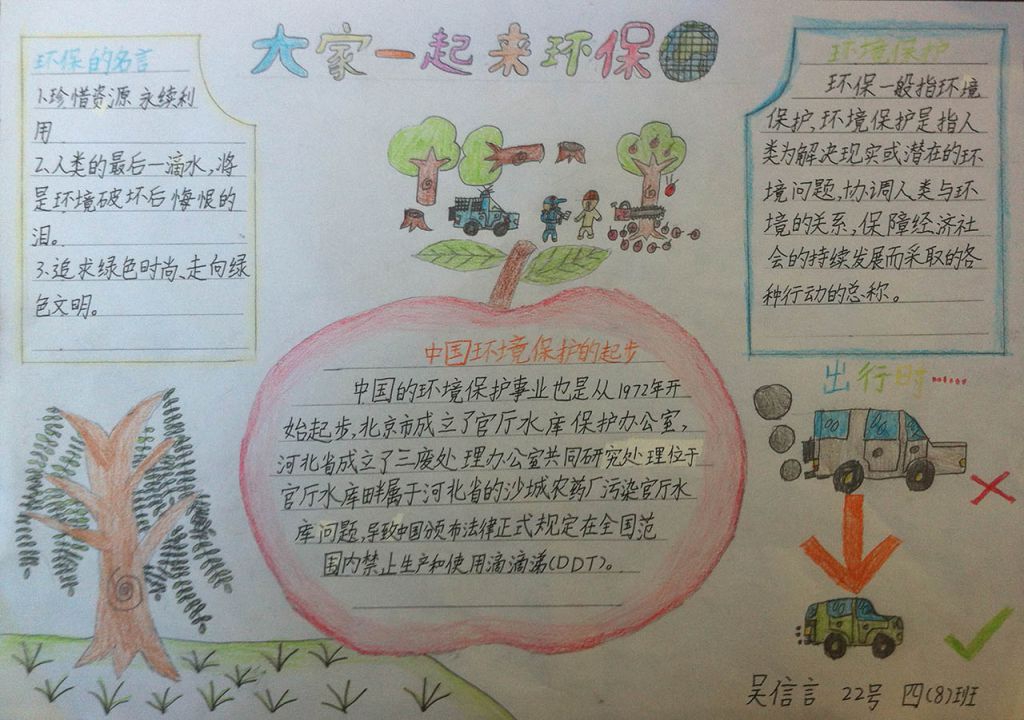 大家一起来环保
环保的名言
1.珍惜资源 永续利
用
2.人类的最后一滴水,将
是环境破坏后悔恨的
泪。
3.追求绿色时尚、走向绿
色文明。
环境保护
环保一般指环境
保护,环境保护是指人
类为解决现实或潜在的环
境问题,协调人类与环
境的关系,保障经济社
会的持续发展而采取的各
种行动的总称。
中国环境保护的起步
中国的环境保护事业也是从1972年开
始起步,北京市成立了官厅水库保护办公室,
河北省成立了三废处理办公室共同研究处理位于
官厅水库畔属于河北省的沙城农药厂污染官厅水
库问题,导致中国颁布法律正式规定在全国范
围内禁止生产和使用滴滴涕(DDT)。
出行时……
吴信言 22号 四(8)班